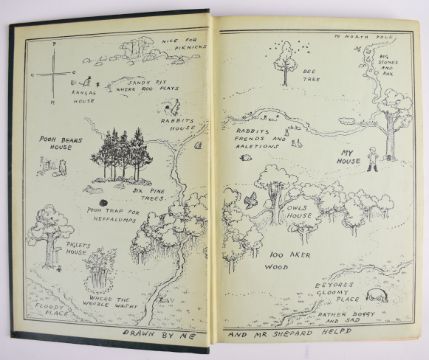 NICE FOR
PIKNICKS
P
KANGAS
HOUSE
SANDY PIT
WHERE ROO PLAYS
RABBITS
HOUSE
POOH BEARS
HOUSE
SIX PINE
TREES.
POOH TRAP FOR
HEFFALUMPS
PIGLETS
HOUSE
WHERE THE
WOOZLE WASNT
FLOODY
PLACE
DRAWN BY ME
TO NORTH POLE
BIG
STONES
AND
ROX
BEE
TREE
RABBITS
FRENDS AND
RALETIONS
MY
HOUSE
OWLS
HOUSE
100 AKER
WOOD
EEYORES
GLOOMY
PLACE
RATHER BOGGY
AND SAD
AND MR SHEPARD HELPD